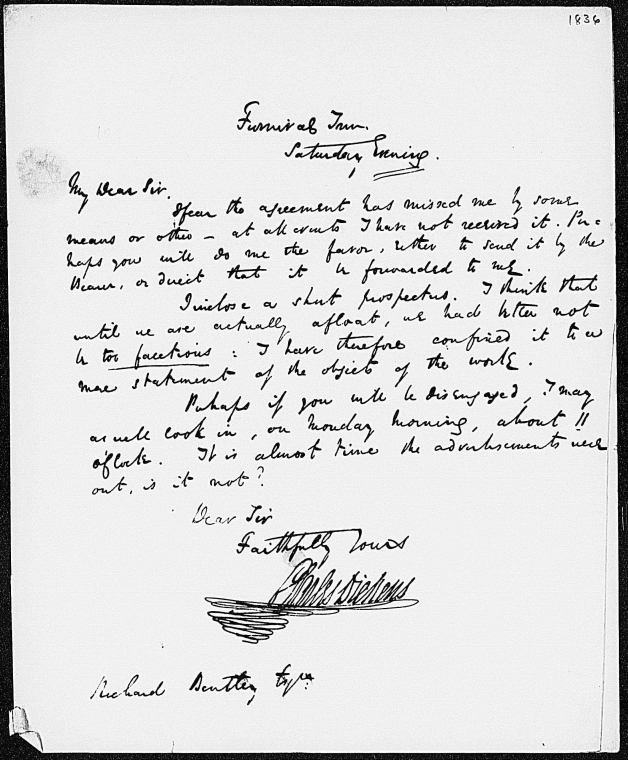 1836
Furnivals Inn.
Saturday Evening.
My Dear Sir.
I fear the agreement has missed me by some
means or other – at all events I have not received it. Per=
haps you will do me the favor, either to send it by the
Bearer, or direct that it be forwarded to me.
I inclose a short prospectus. I think that
until we are actually afloat, we had better not
be too facetious : I have therefore confined it to a
mere statement of the objects of the work.
Perhaps if you will be disengaged, I may
as well look in, on Monday Morning, about 11
oClock. It is almost time the advertisements were
out, is it not?
Dear Sir
Faithfully Yours
Charles Dickens
Richard Bentley Esqre